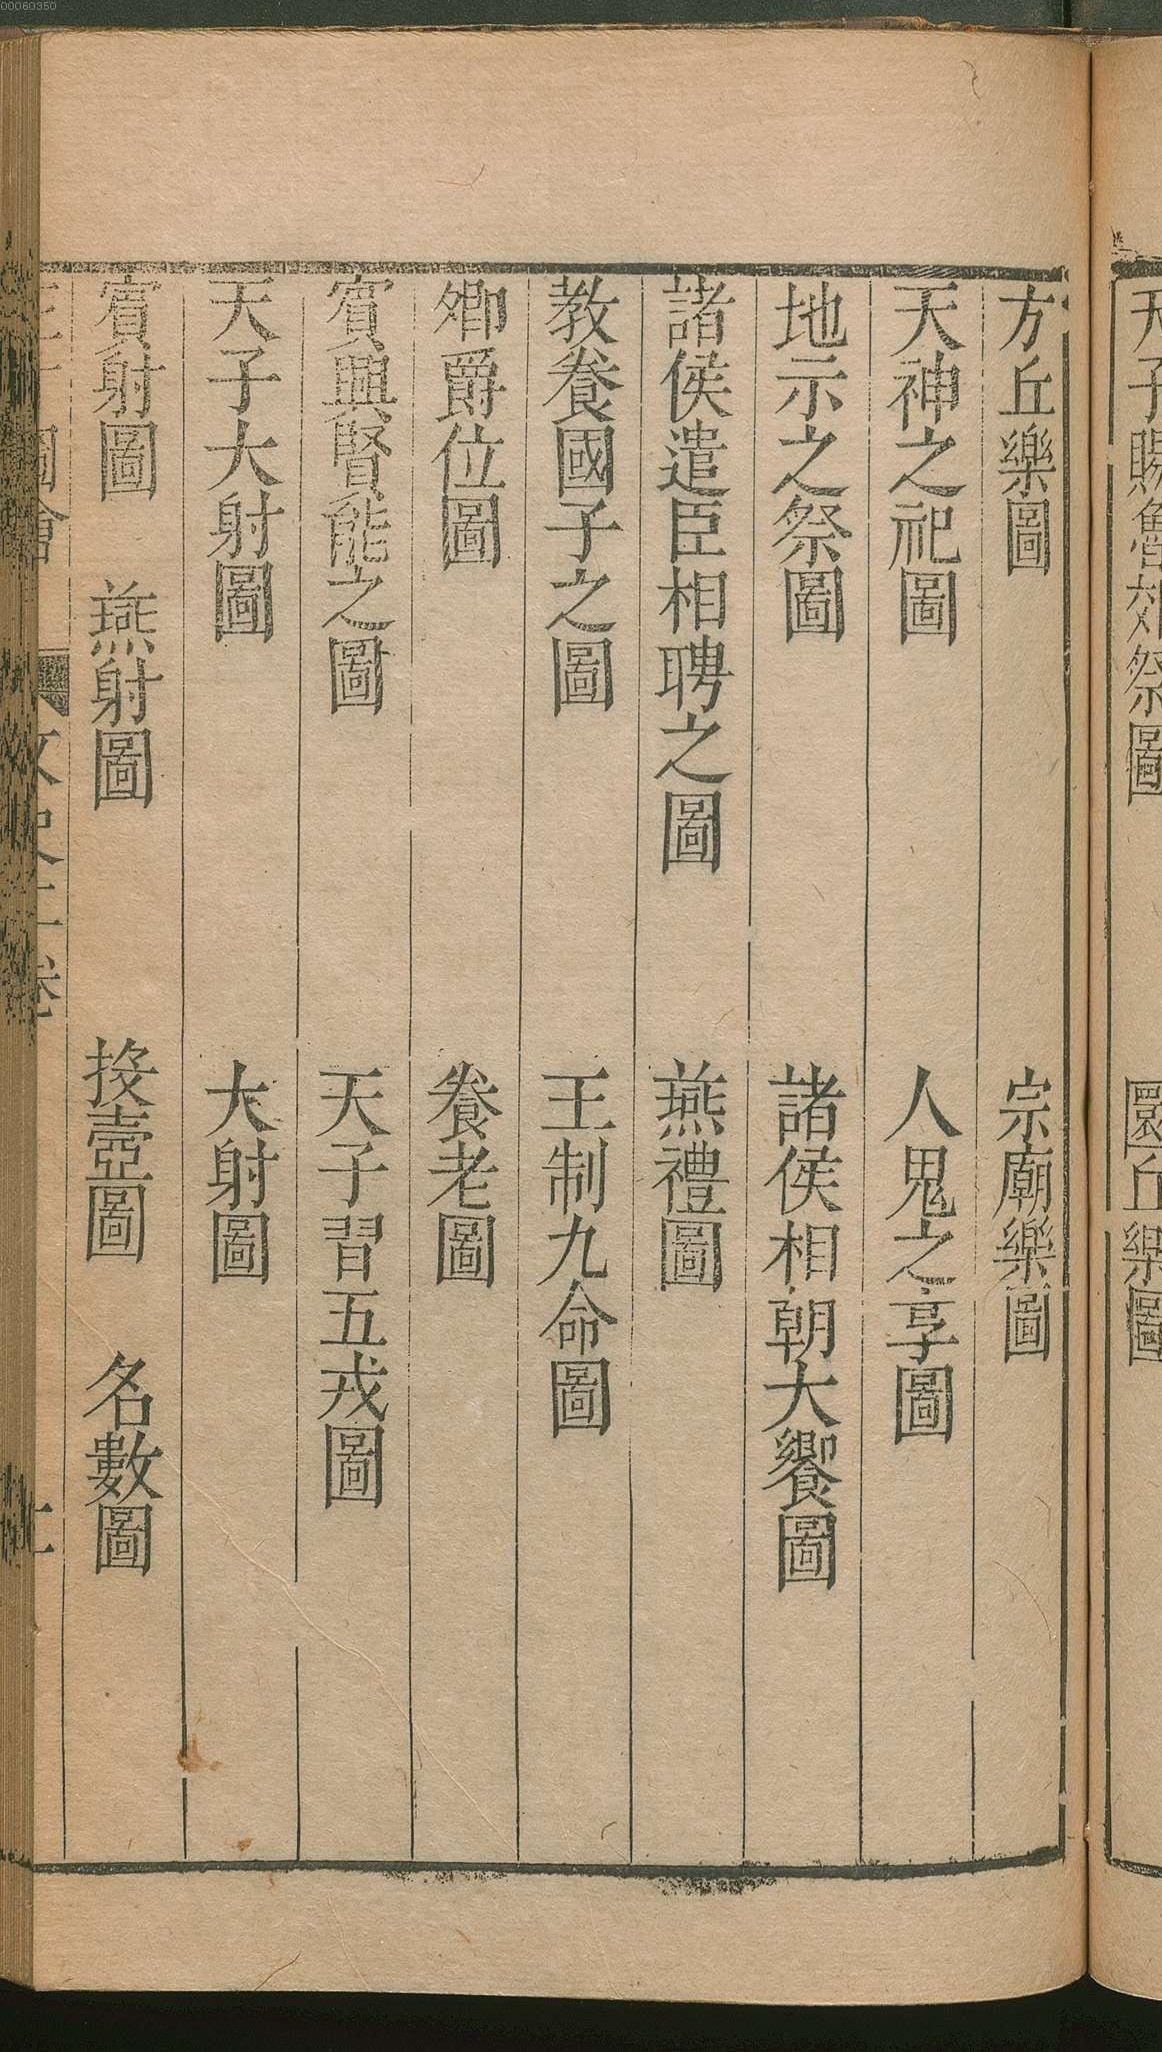 00060350
天子賜魯郊祭圖 圜丘樂圖
方丘樂圖 宗廟樂圖
天神之祀圖 人鬼之享圖
地示之祭圖 諸侯相朝大饗圖
諸侯遣臣相聘之圖 燕禮圖
教養國子之圖 王制九命圖
卿爵位圖 養老圖
賓興賢能之圖 天子習五戎圖
天子大射圖 大射圖
賓射圖 燕射圖 投壺圖 名數圖
圖會 文史 卷